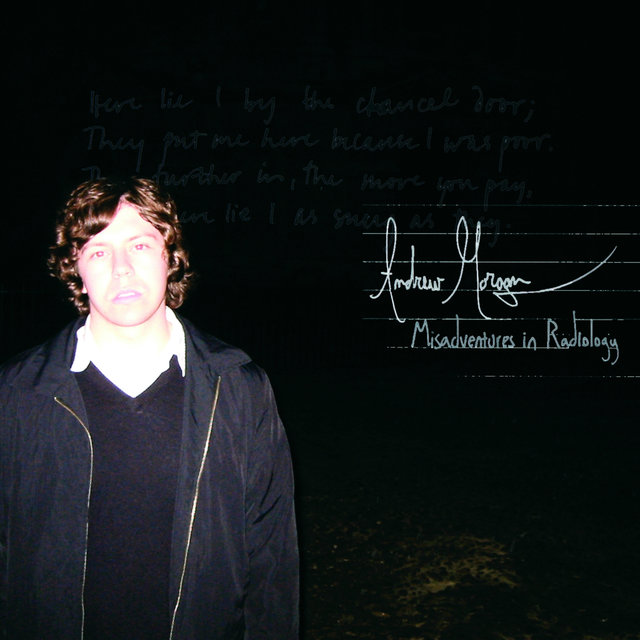 Here lie I by the chancel door;
They put me here because I was poor.
The further in, the more you pay,
Here lie I as snug as they.
Andrew Morgan
Misadventures in Radiology